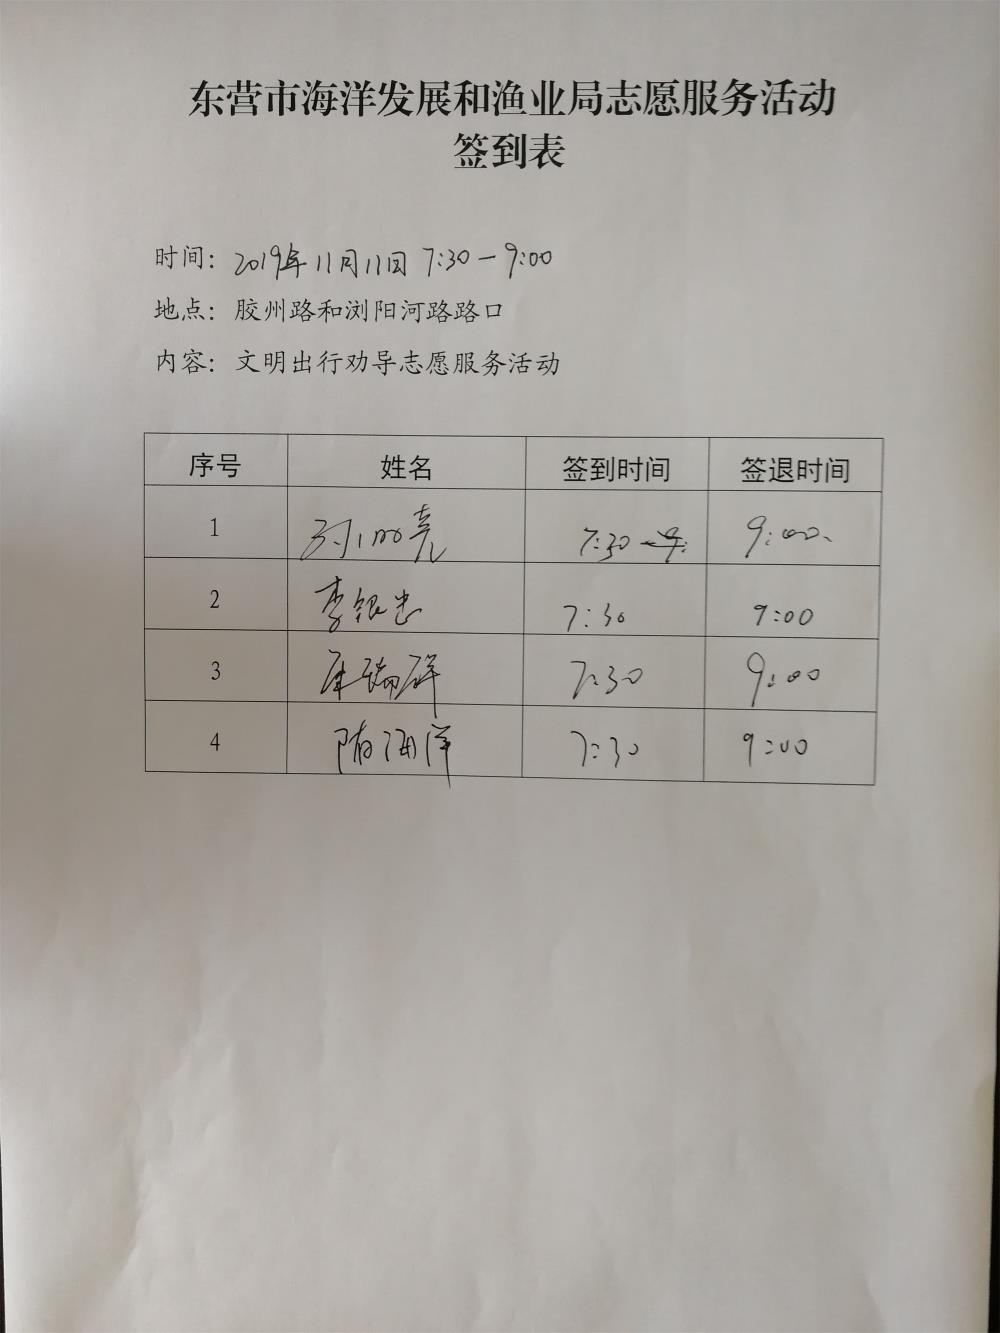 东营市海洋发展和渔业局志愿服务活动
签到表
时间：2019年11月11日 7:30-9:00
地点：胶州路和浏阳河路路口
内容：文明出行劝导志愿服务活动
序号 姓名 签到时间 签退时间
1 7:30 9:00
2 李银忠 7:30 9:00
3 7:30 9:00
4 隋海洋 7:30 9:00